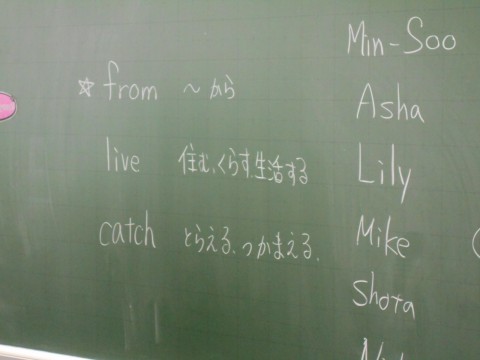 ☆ from ~から
live 住む、くらす、生活する
catch とらえる、つかまえる.
Min-Soo
Asha
Lily
Mike
Shota